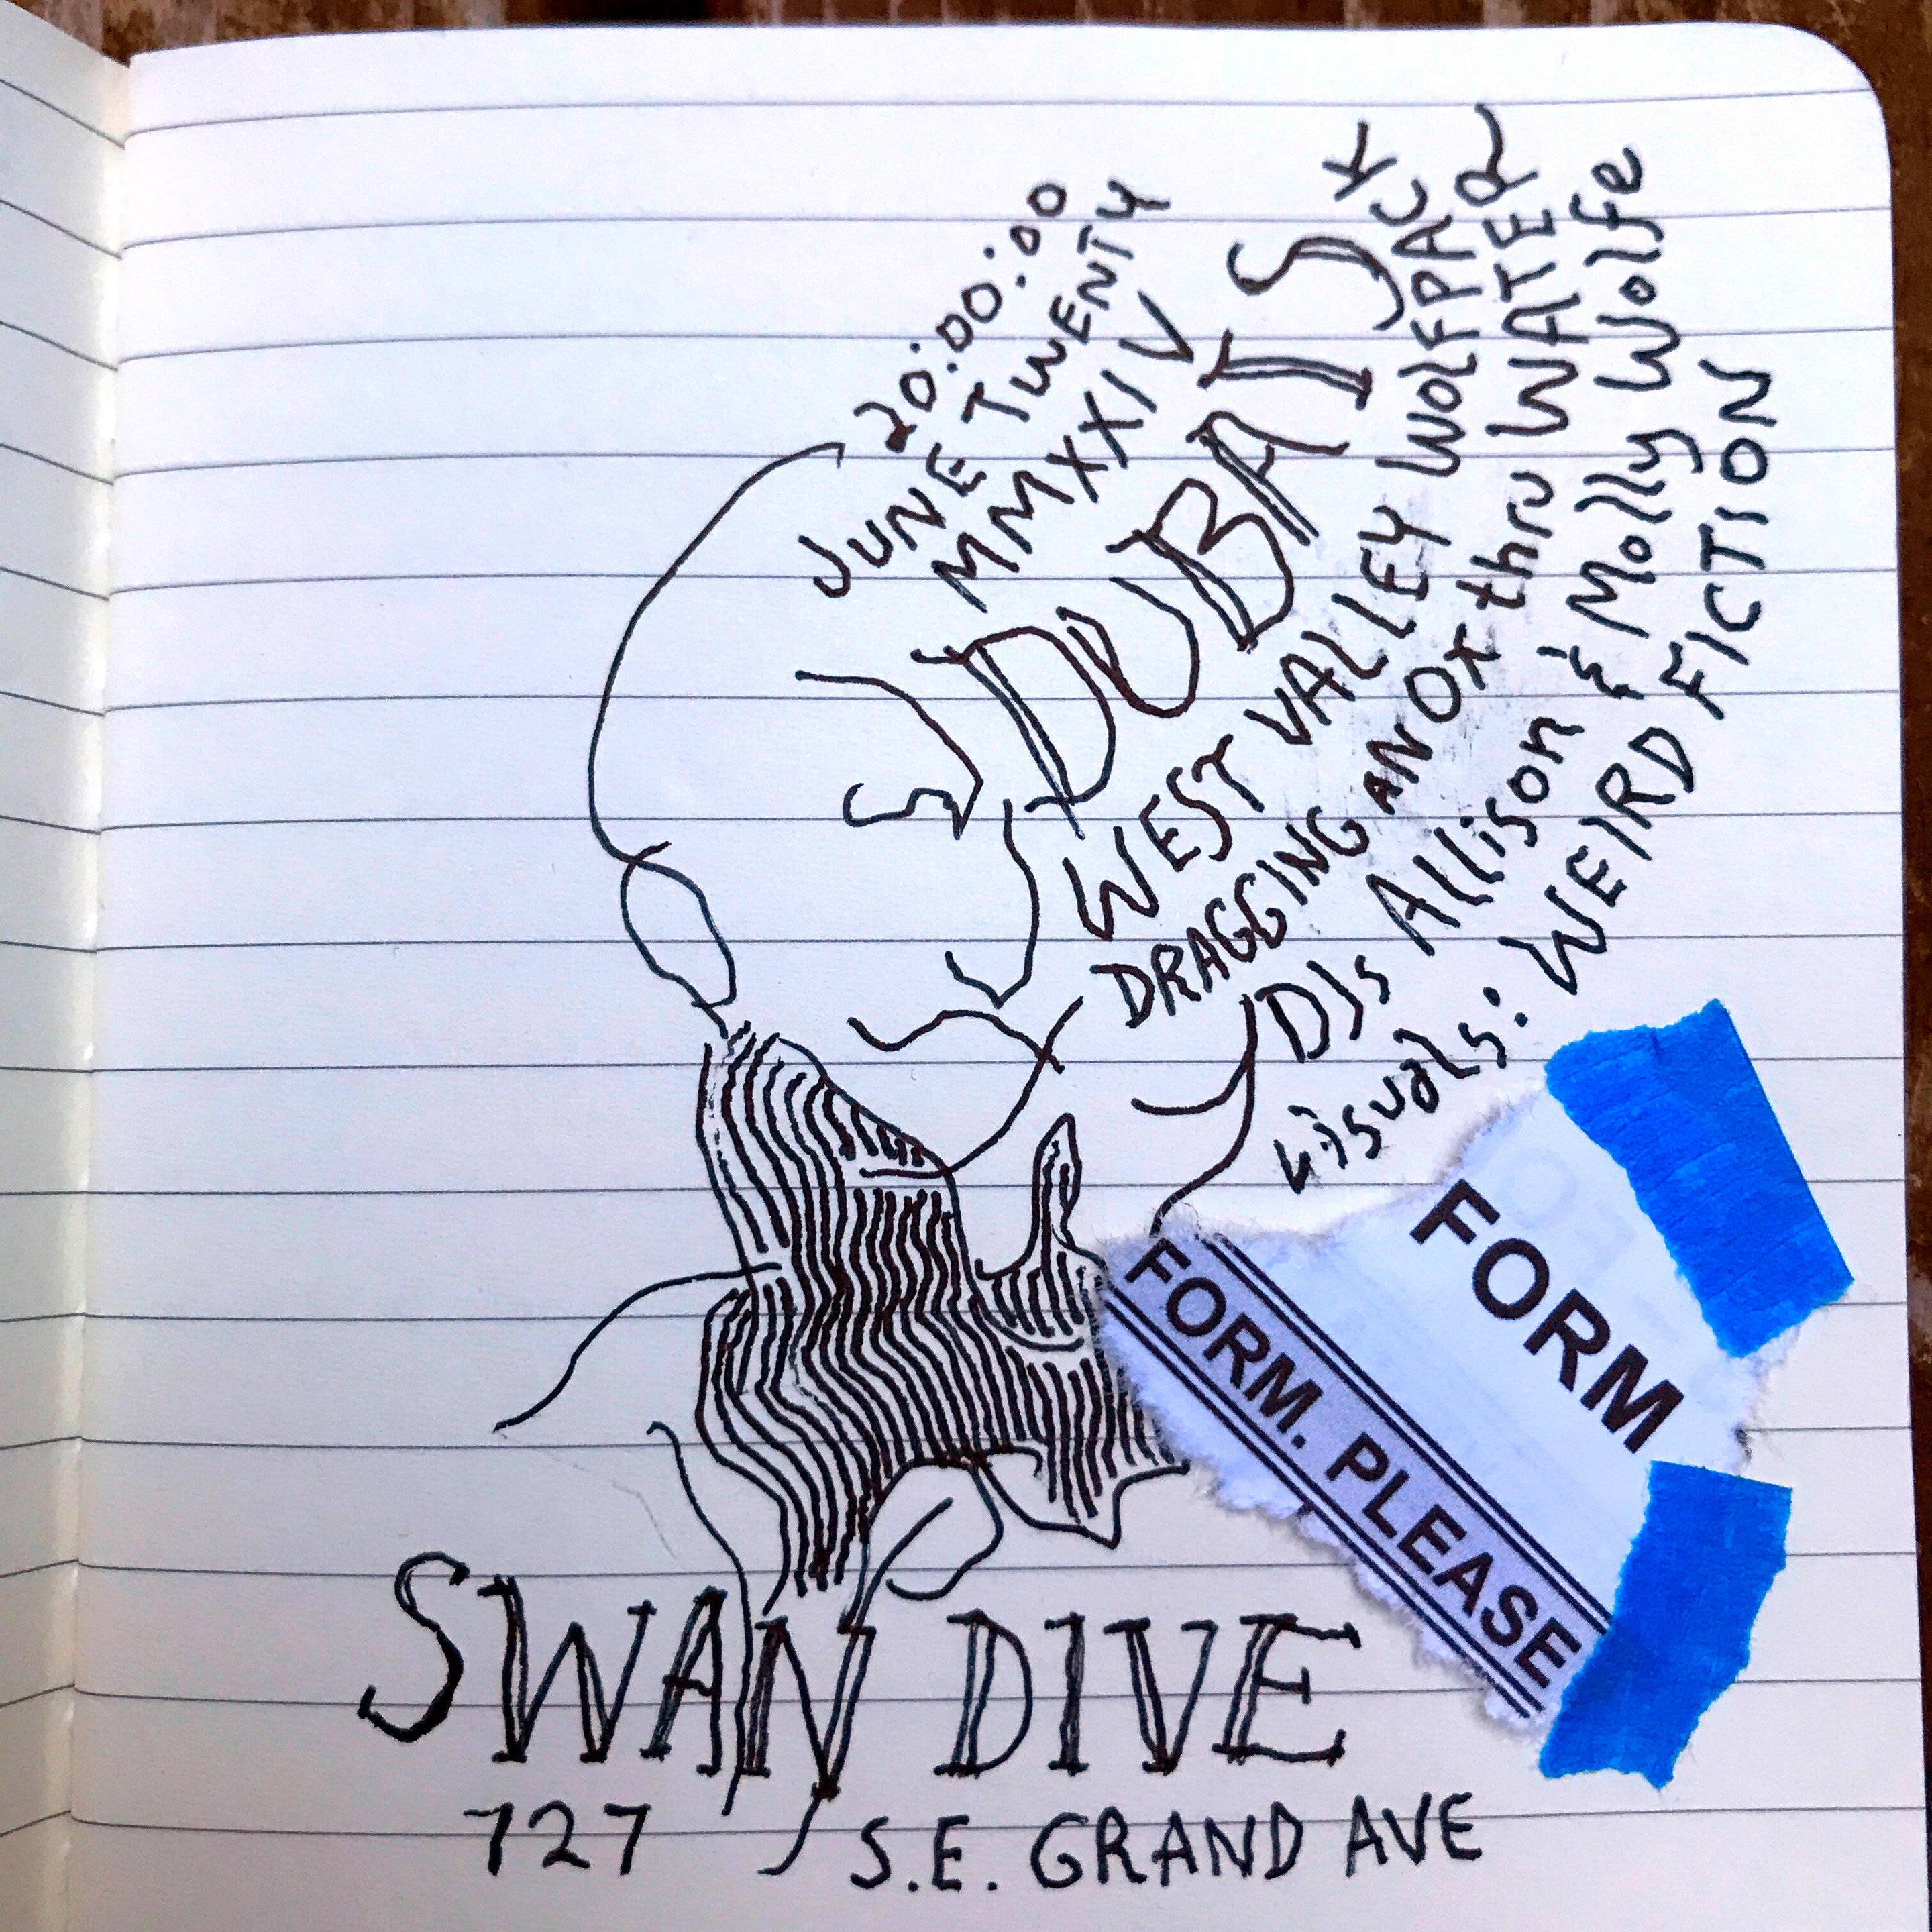 20:00:00
JUNE TWENTY
MMXXIV
DUBAIS
WEST VALLEY WOLFPACK
DRAGGING AN OX thru WATER
DJs Allison & Molly Wolfe
Visuals: WEIRD FICTION
FORM
FORM. PLEASE
SWAN DIVE
727 S.E. GRAND AVE